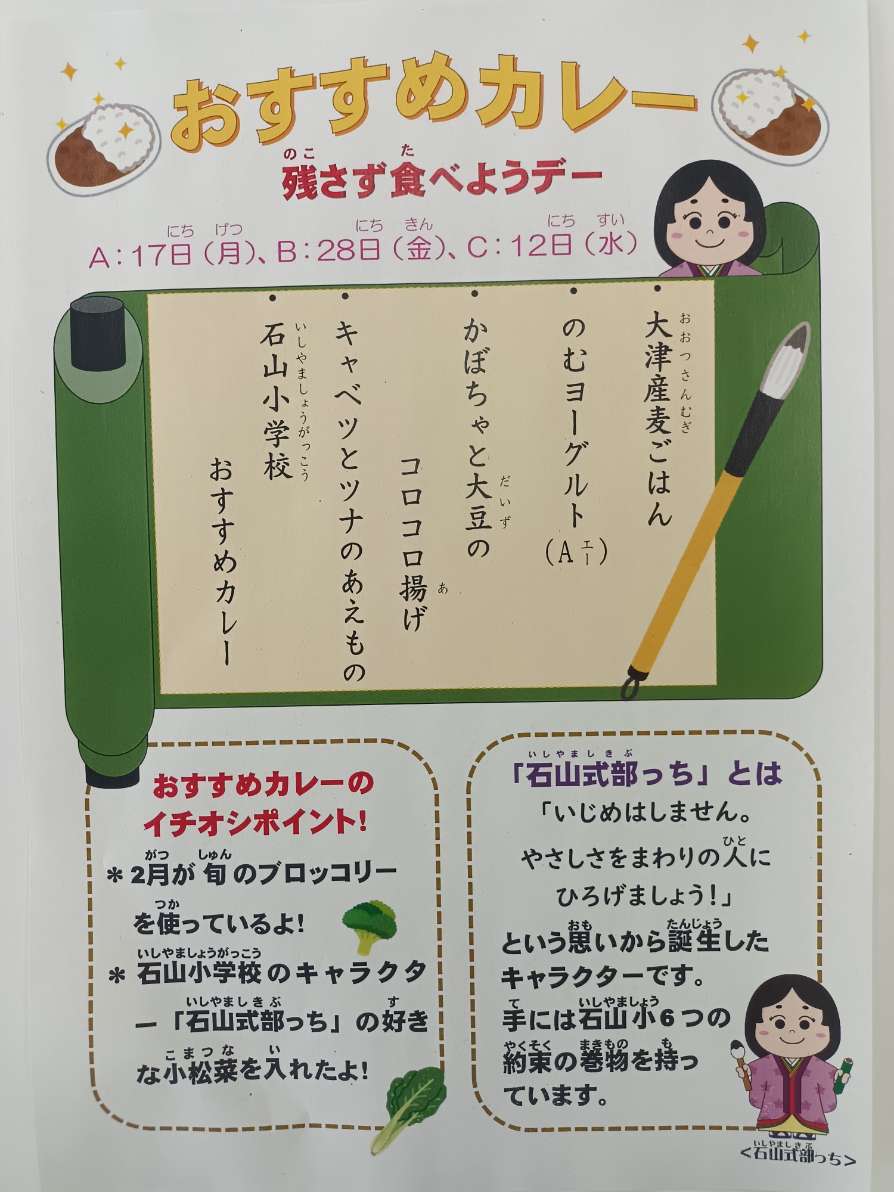 おすすめカレー
残さず食べようデー
A:17日(月)、B:28日(金)、C:12日(水)
・大津産麦ごはん
・のむヨーグルト(A)
・かぼちゃと大豆の
コロコロ揚げ
・キャベツとツナのあえもの
・石山小学校
おすすめカレー
おすすめカレーの
イチオシポイント!
*2月が旬のブロッコリー
を使っているよ!
*石山小学校のキャラクタ
ー「石山式部っち」の好き
な小松菜を入れたよ!
「石山式部っち」とは
「いじめはしません。
やさしさをまわりの人に
ひろげましょう!」
という思いから誕生した
キャラクターです。
手には石山小6つの
約束の巻物を持っ
ています。
<石山式部っち>